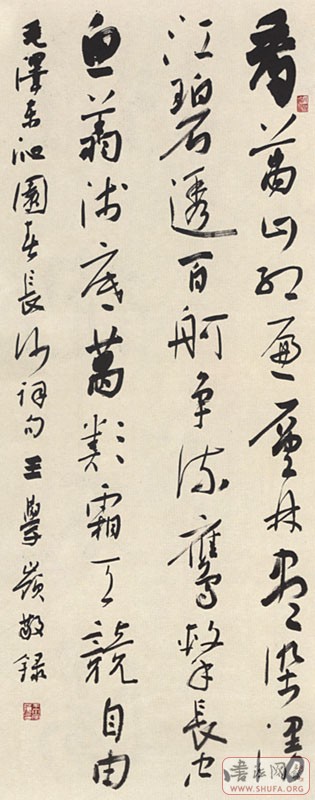 看萬山紅遍層林盡染漫
江碧透百舸争流鷹擊長空
魚翔淺底萬類霜天競自由
毛澤東沁園春長沙詞句王學嶺敬録
WWW.SHUFA.ORG